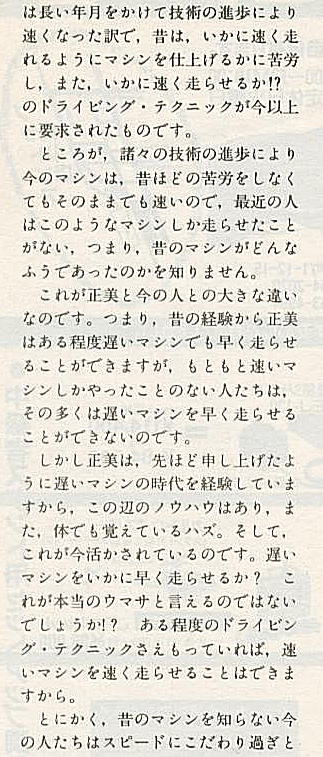 は長い年月をかけて技術の進歩により
速くなった訳で，昔は，いかに速く走
れるようにマシンを仕上げるかに苦労
し，また，いかに速く走らせるか!?
のドライビング・テクニックが今以上
に要求されたものです。
ところが，諸々の技術の進歩により
今のマシンは，昔ほどの苦労をしなく
てもそのままでも速いので，最近の人
はこのようなマシンしか走らせたこと
がない，つまり，昔のマシンがどんな
ふうであったのかを知りません。
これが正美と今の人との大きな違い
なのです。つまり，昔の経験から正美
はある程度遅いマシンでも早く走らせ
ることができますが，もともと速いマ
シンしかやったことのない人たちは，
その多くは遅いマシンを早く走らせる
ことができないのです。
しかし正美は，先ほど申し上げたよ
うに遅いマシンの時代を経験していま
すから，この辺のノウハウはあり，ま
た，体でも覚えているハズ。そして，
これが今活かされているのです。遅い
マシンをいかに早く走らせるか？　こ
れが本当のウマサと言えるのではない
でしょうか!？　ある程度のドライビン
グ・テクニックさえもっていれば，速
いマシンを速く走らせることはできま
すから。
とにかく，昔のマシンを知らない今
の人たちはスピードにこだわり過ぎと